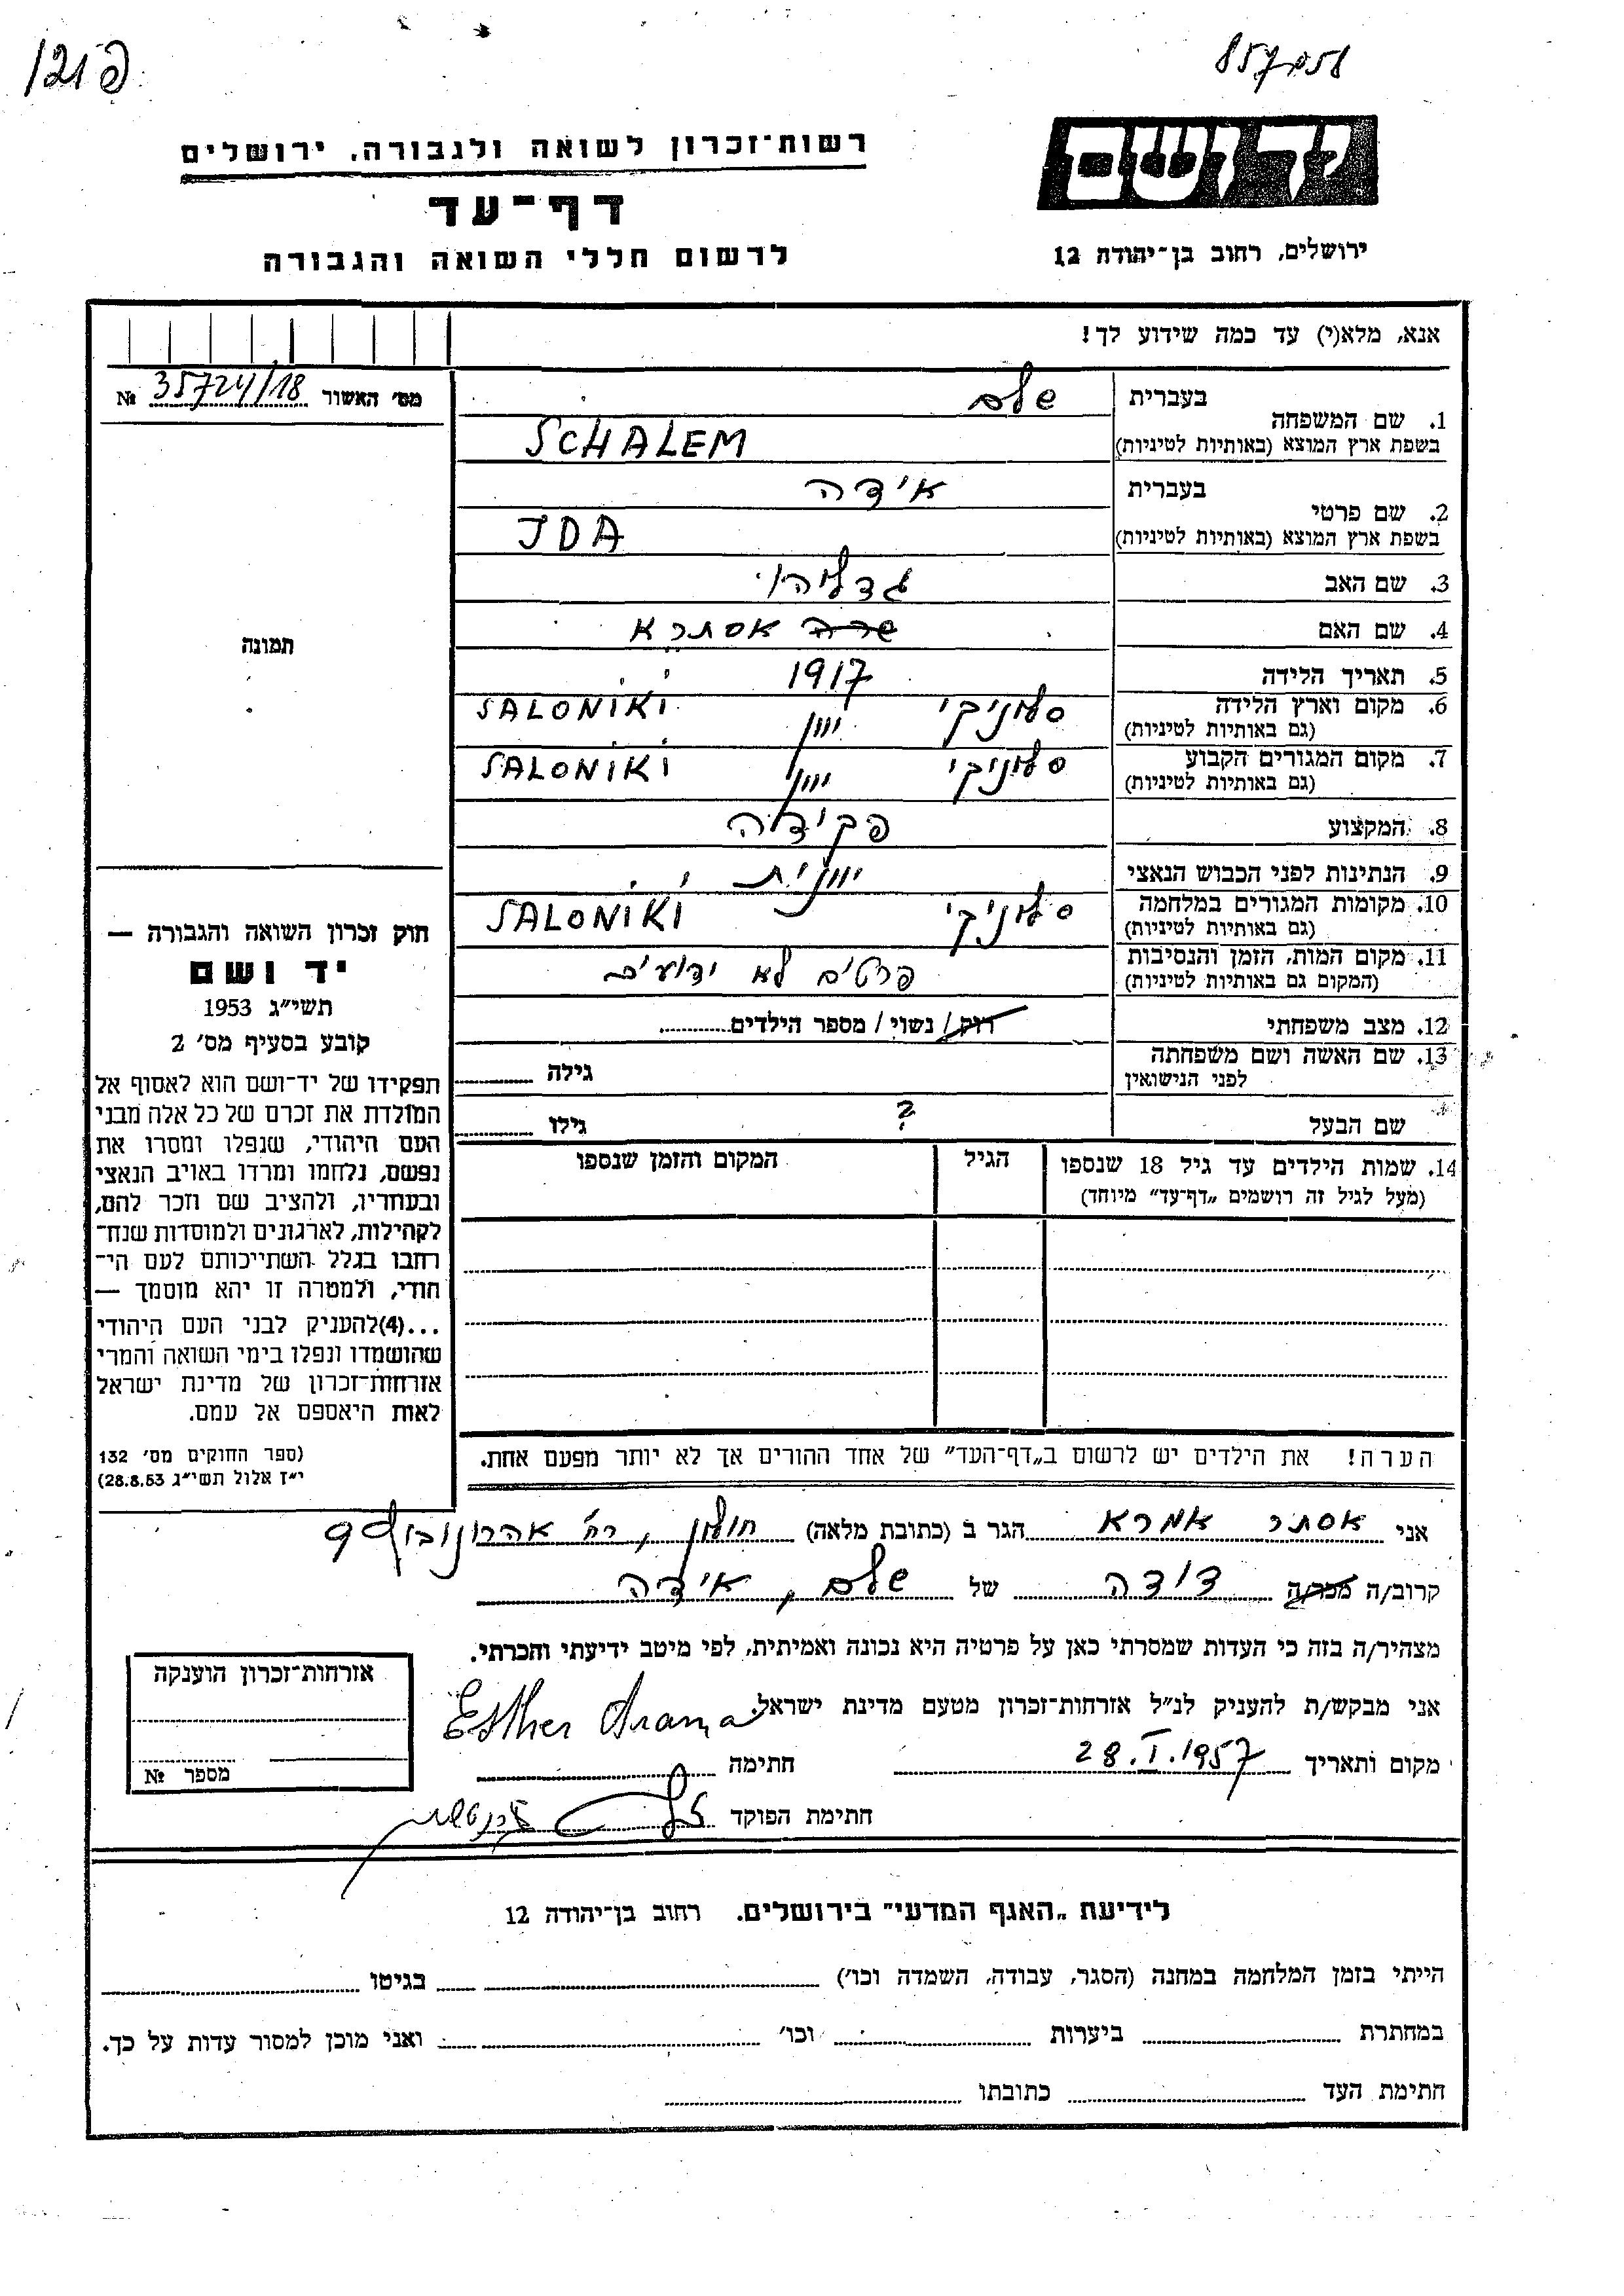 121 פ
857058
יד ושם
ירושלים, רחוב בן־יהודה 12
רשות־זכרון לשואה ולגבורה, ירושלים
דף־עד
לרשום חללי השואה והגבורה
אנא, מלא(י) עד כמה שידוע לך!
מס׳ האשור 35724/18 №
תמונה
חוק זכרון השואה והגבורה —
יד ושם
תשי״ג 1953
קובע בסעיף מס׳ 2
תפקידו של יד־ושם הוא לאסוף אל
המולדת את זכרם של כל אלה מבני
העם היהודי, שנפלו ומסרו את
נפשם, נלחמו ומרדו באויב הנאצי
ובעוזריו, ולהציב שם וזכר להם,
לקהילות, לארגונים ולמוסדות שנח־
רבו בגלל השתייכותם לעם הי־
הודי, ולמטרה זו יהא מוסמך —
...(4)להעניק לבני העם היהודי
שהושמדו ונפלו בימי השואה והמרי
אזרחות־זכרון של מדינת ישראל
לאות היאספם אל עמם.
(ספר החוקים מס׳ 132
י״ז אלול תשי״ג 28.8.53)
1. שם המשפחה בעברית שלם
בשפת ארץ המוצא (באותיות לטיניות) SCHALEM
2. שם פרטי בעברית אידה
בשפת ארץ המוצא (באותיות לטיניות) IDA
3. שם האב גדליהו
4. שם האם שרה אסתרא
5. תאריך הלידה 1917
6. מקום וארץ הלידה סלוניקי יוון SALONIKI
(גם באותיות לטיניות)
7. מקום המגורים הקבוע סלוניקי יוון SALONIKI
(גם באותיות לטיניות)
8. המקצוע פקידה
9. הנתינות לפני הכבוש הנאצי יוונית
10. מקומות המגורים במלחמה סלוניקי SALONIKI
(גם באותיות לטיניות)
11. מקום המות, הזמן והנסיבות פרטים לא ידועים
(המקום גם באותיות לטיניות)
12. מצב משפחתי רוק / נשוי / מספר הילדים
13. שם האשה ושם משפחתה גילה
לפני הנישואין
שם הבעל ? גילו
14. שמות הילדים עד גיל 18 שנספו הגיל המקום והזמן שנספו
(מעל לגיל זה רושמים „דף־עד״ מיוחד)
הערה! את הילדים יש לרשום ב„דף־העד״ של אחד ההורים אך לא יותר מפעם אחת.
אני אסתר אמרא הגר ב (כתובת מלאה) חולון, רח׳ אהרונוביץ 99
קרוב/ה מכר/ה דודה של שלם, אידה
מצהיר/ה בזה כי העדות שמסרתי כאן על פרטיה היא נכונה ואמיתית, לפי מיטב ידיעתי והכרתי.
אני מבקש/ת להעניק לנ״ל אזרחות־זכרון מטעם מדינת ישראל.
Esther Arama
מקום ותאריך 28.I.1957 חתימה
חתימת הפוקד
אזרחות־זכרון הוענקה
מספר №
לידיעת „האגף המדעי״ בירושלים. רחוב בן־יהודה 12
הייתי בזמן המלחמה במחנה (הסגר, עבודה, השמדה וכו׳) בגיטו
במחתרת ביערות וכו׳ ואני מוכן למסור עדות על כך.
חתימת העד כתובתו